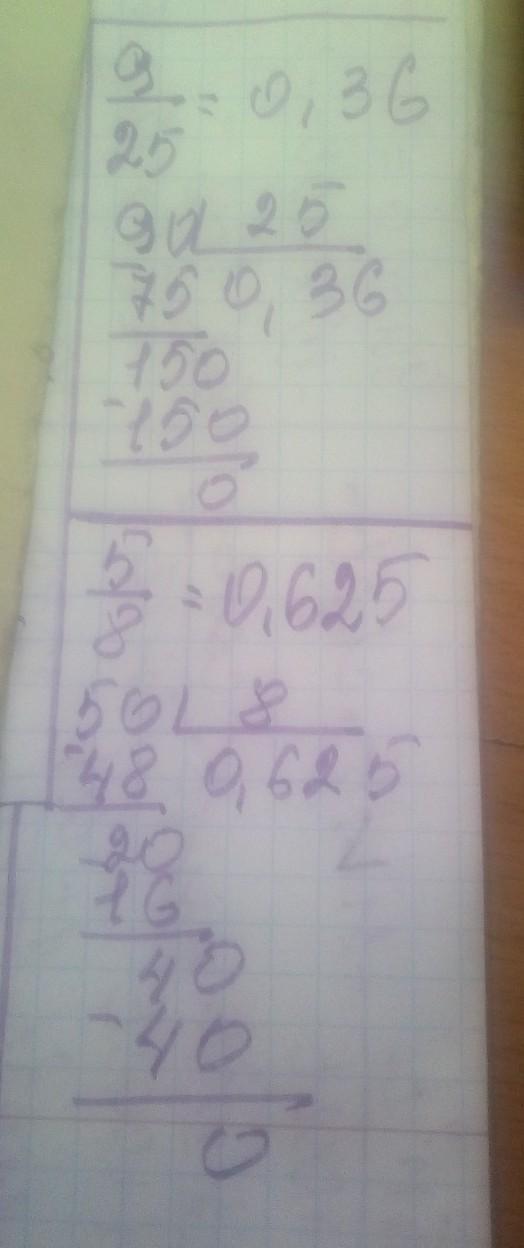 9/25 = 0,36
90 | 25
-75 0,36
150
-150
0
5/8 = 0,625
50 | 8
-48 0,625
-20
16
40
-40
0